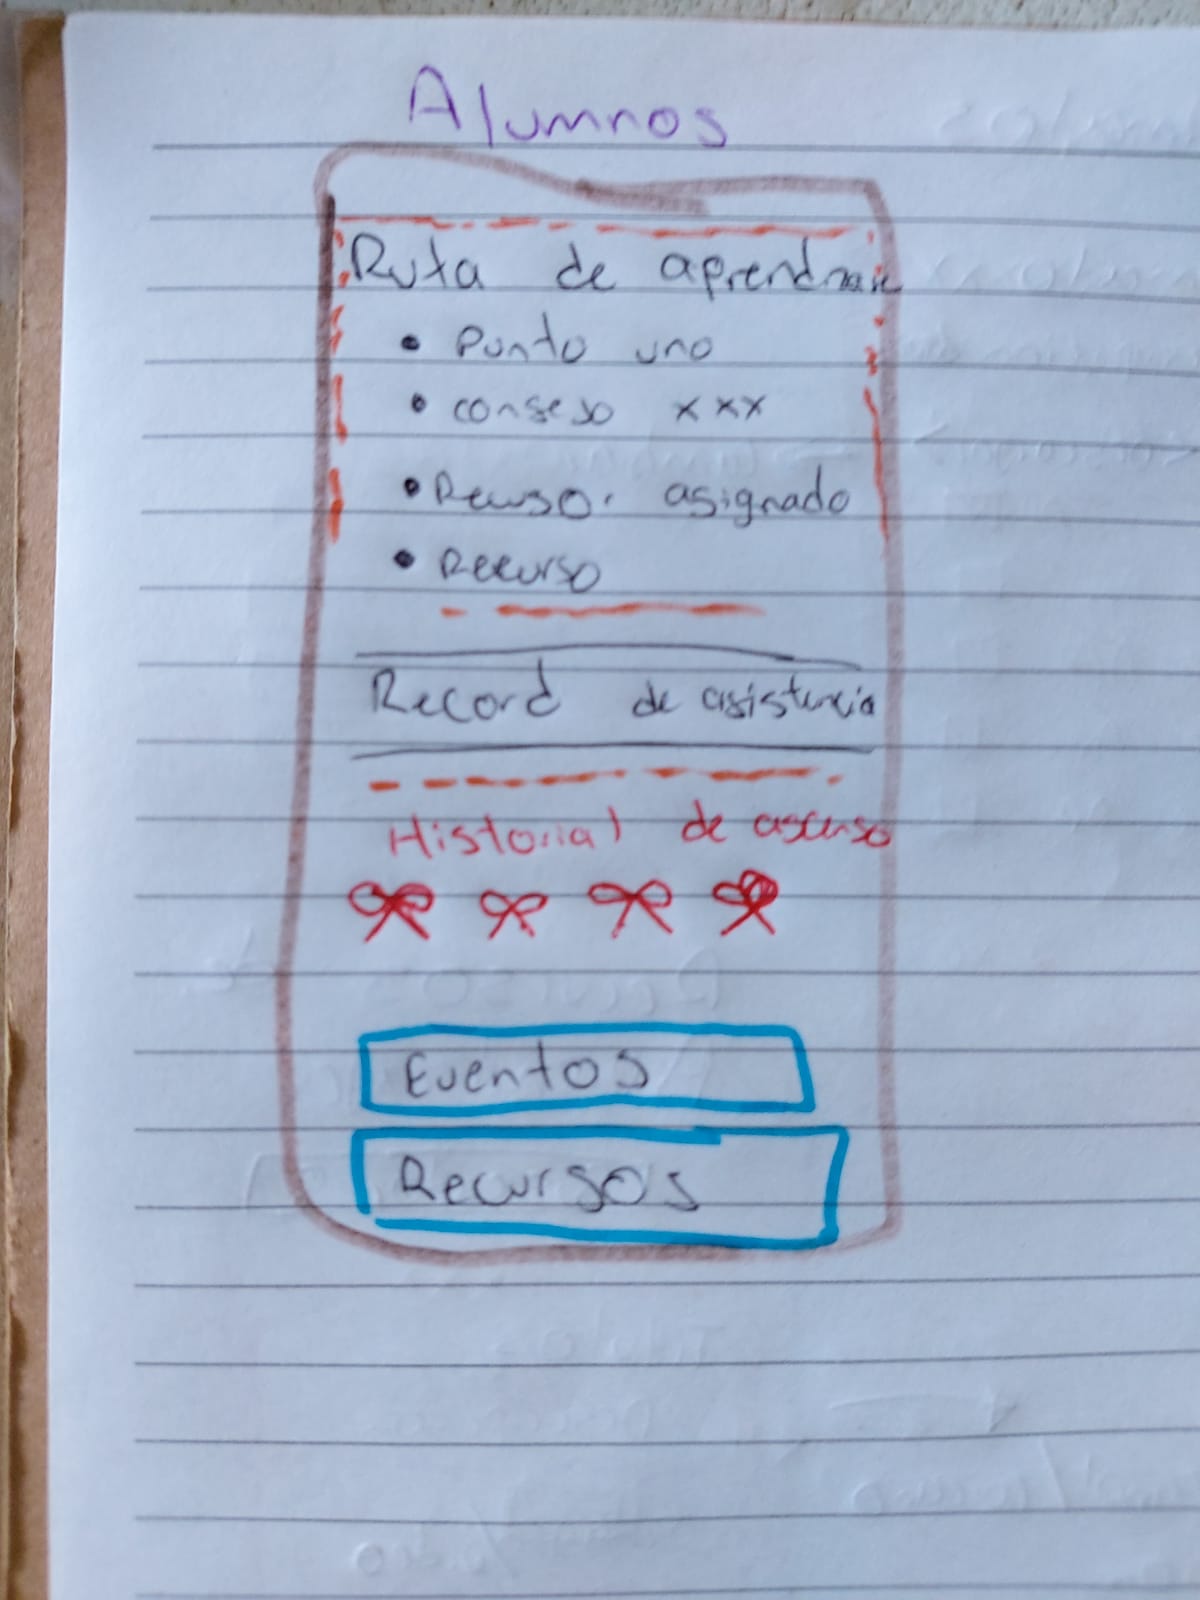 Alumnos
Ruta de aprendizaje
• Punto uno
• consejo xxx
• Recurso. asignado
• Recurso
Record de asistencia
Historial de ascenso
Eventos
Recursos